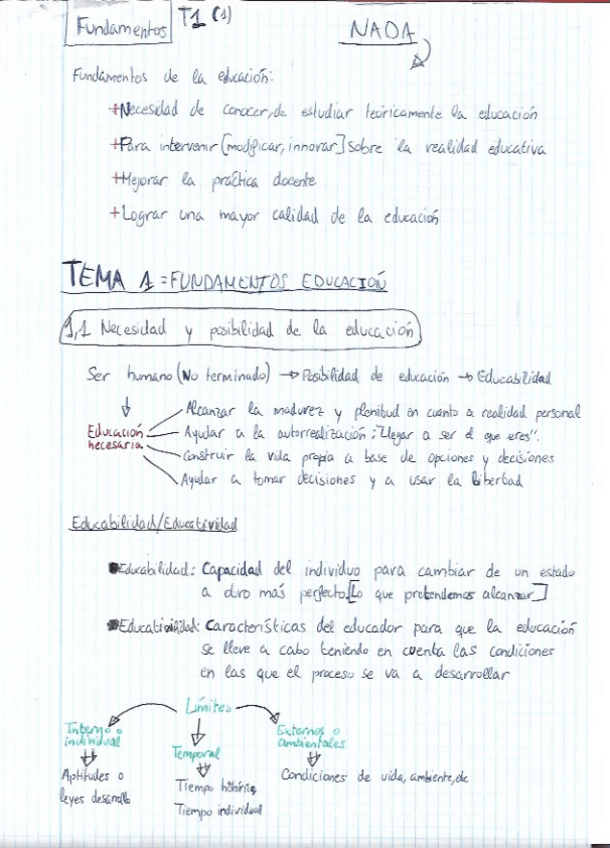 Fundamentos T1 (1)
NADA
Fundamentos de la educación:
+Necesidad de conocer, de estudiar teóricamente la educación
+Para intervenir [modificar, innovar] sobre la realidad educativa
+Mejorar la práctica docente
+Lograr una mayor calidad de la educación
TEMA 1 = FUNDAMENTOS EDUCACIÓN
1,1 Necesidad y posibilidad de la educación
Ser humano (No terminado) → Posibilidad de educación → Educabilidad
Educación necesaria
Alcanzar la madurez y plenitud en cuanto a realidad personal
Ayudar a la autorrealización; "Llegar a ser el que eres".
Construir la vida propia a base de opciones y decisiones
Ayudar a tomar decisiones y a usar la libertad
Educabilidad/Educatividad
Educabilidad: Capacidad del individuo para cambiar de un estado
a otro más perfecto [Lo que pretendemos alcanzar]
Educatividad: Características del educador para que la educación
se lleve a cabo teniendo en cuenta las condiciones
en las que el proceso se va a desarrollar
Límites
Interno o
individual
Aptitudes o
leyes desarrollo
Temporal
Tiempo histórico
Tiempo individual
Externos o
ambientales
Condiciones de vida, ambiente, etc